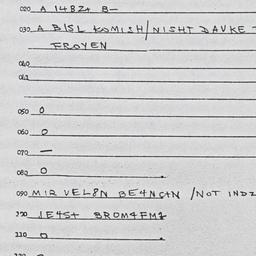 020 A 14824 B-
030 A BISL KOMISH/NISHT DAVKE-
FROYEN
040
041
050 0
060 0
070 —
080 0
090 MIR VEL8N BE4NG4N /NOT INDZ
110 0